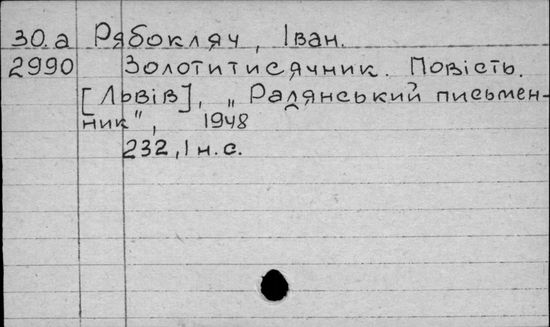 30.а Рябокляч, Іван.
2990 Золотитисячник. Повість.
[Львів], „Радянський письмен-
ник", 1948
232, 1 н.с.